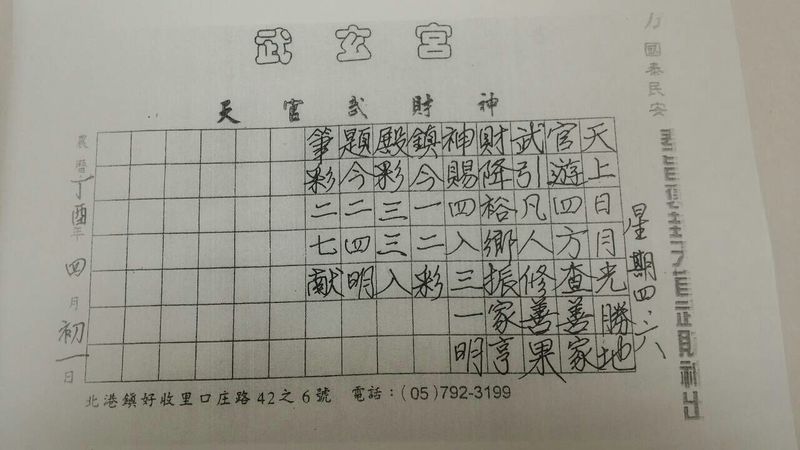 武玄宮
天官武財神
國泰民安
星期四、六
天上日月光勝地
官游四方查善家
武引凡人修善果
財降裕鄉振家亨
神賜四入三一明
鎮今一二彩
殿彩三三入
題今二四明
筆彩二七献
農曆丁酉年四月初一日
北港鎮好收里口庄路42之6號 電話：(05)792-3199